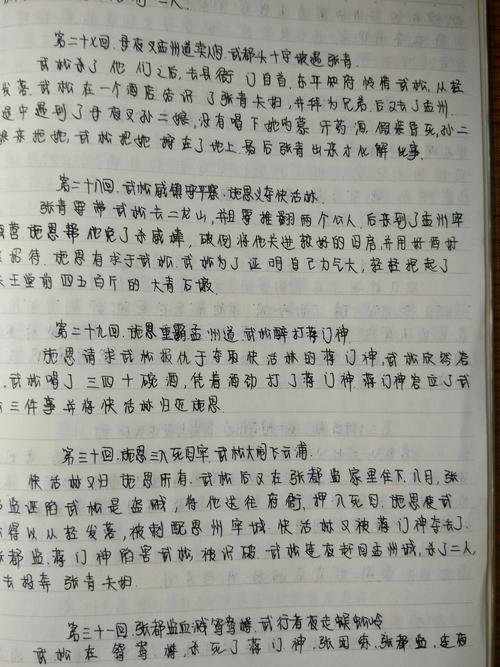 二人.
第二十七回.母夜叉孟州道卖人肉.武都头十字坡遇张青.
武松杀了他们之后,去县衙门自首.东平知府怜惜武松,从轻
发落.武松在一个酒店结识了张青夫妇,并拜为兄弟.后又去了孟州.
途中遇到了母夜叉孙二娘,没有喝下她内蒙汗药酒,假装昏死,孙二
娘来抱她,武松把她按在了地上.最后张青出来才化解此事.
第二十八回.武松威镇平安寨.施恩义夺快活林.
张青要带武松去二龙山,并且要推翻两个公人.后来到了孟州牢
城营施恩帮他免了杀威棒,破例将他关进极好的囚房,并用好酒好
菜招待.施恩有求于武松.武松为了证明自己力气大,轻轻把起了
天王堂前四五百斤的大青石墩.
第二十九回.施恩重霸孟州道.武松醉打蒋门神.
施恩请求武松报仇于夺取快活林的蒋门神,武松欣然答
应.武松喝了三四十碗酒,凭着酒劲打了蒋门神.蒋门神答应了武
松三件事并将快活林归还施恩.
第三十回.施恩三入死囚牢.武松大闹飞云浦.
快活林又归施恩所有.武松后又在张都监家里住下.八月,张
都监诬陷武松是盗贼,将他送往府衙,押入死囚.施恩使武
松得以从轻发落,被刺配恩州牢城.快活林又被蒋门神夺去了.
张都监.蒋门神陷害武松.被识破.武松连夜赶回孟州城,杀了二人,
去投奔张青夫妇.
第三十一回.张都监血溅鸳鸯楼.武行者夜走蜈蚣岭
武松在鸳鸯楼,杀死了蒋门神.张团练.张都监,连夜